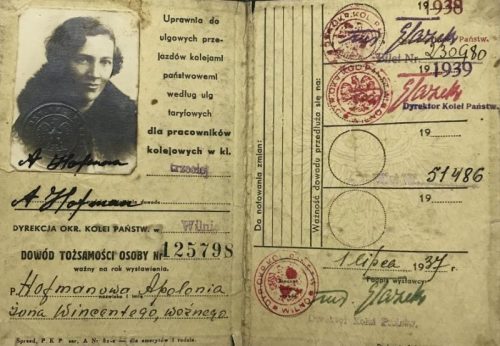 Uprawnia do
ulgowych prze-
jazdów kolejami
państwowemi
według ulg
taryfowych
dla pracowników
kolejowych w kl.
trzeciej
A Hofmanowa
A Hofman
DYREKCJA OKR. KOLEI PAŃSTW. w Wilnie
DOWÓD TOŻSAMOŚCI OSOBY № 125798
ważny na rok wystawienia.
P. Hofmanowa Apolonia
nazwisko i imię
żona Wincentego, woźnego
Sprawd. P. K. P. ser. A Nr — dla emerytów i rodzin.
Do notowania zmian:
Ważność dowodu przedłuża się na:
1938
Bilet Nr. 230980
1939
Dyrektor Kolei Państw.
19
51486
19
1 lipca 1937 r.
Podpis wystawcy
Dyrektor Kolei Państw.